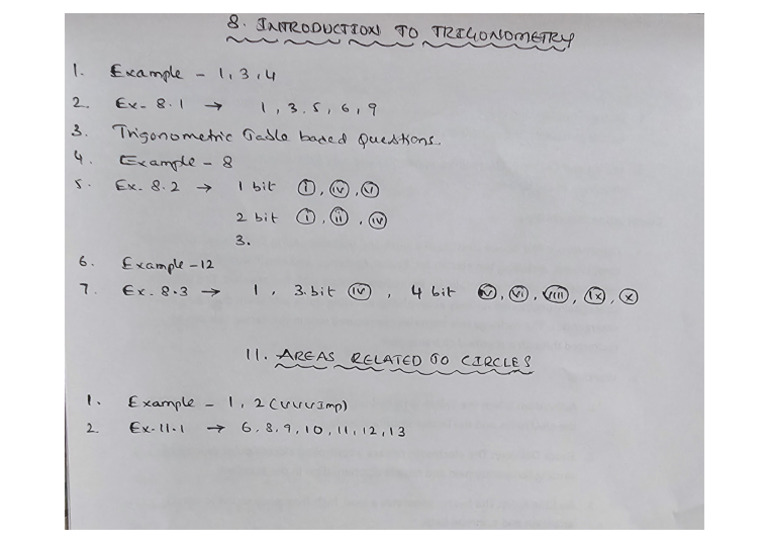 8. INTRODUCTION TO TRIGONOMETRY
1. Example - 1, 3, 4
2. Ex- 8.1 → 1, 3, 5, 6, 9
3. Trigonometric Table based Questions.
4. Example - 8
5. Ex. 8.2 → 1 bit (i), (iv), (v)
2 bit (i), (ii), (iv)
3.
6. Example -12
7. Ex. 8.3 → 1, 3. bit (iv), 4 bit (v), (vi), (viii), (ix), (x)
11. AREAS RELATED TO CIRCLES
1. Example - 1, 2 (VVVImp)
2 Ex-11.1 → 6, 8, 9, 10, 11, 12, 13